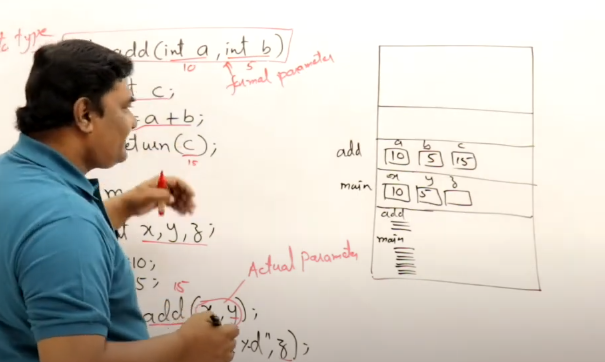 type
add(int a, int b)
10 5
formal parameter
c;
a+b;
(c);
15
x,y,z;
10;
5;
15
Actual Parameter
add(x,y);
d",z);
a b c
add 10 5 15
x y z
main 10 5
add
main